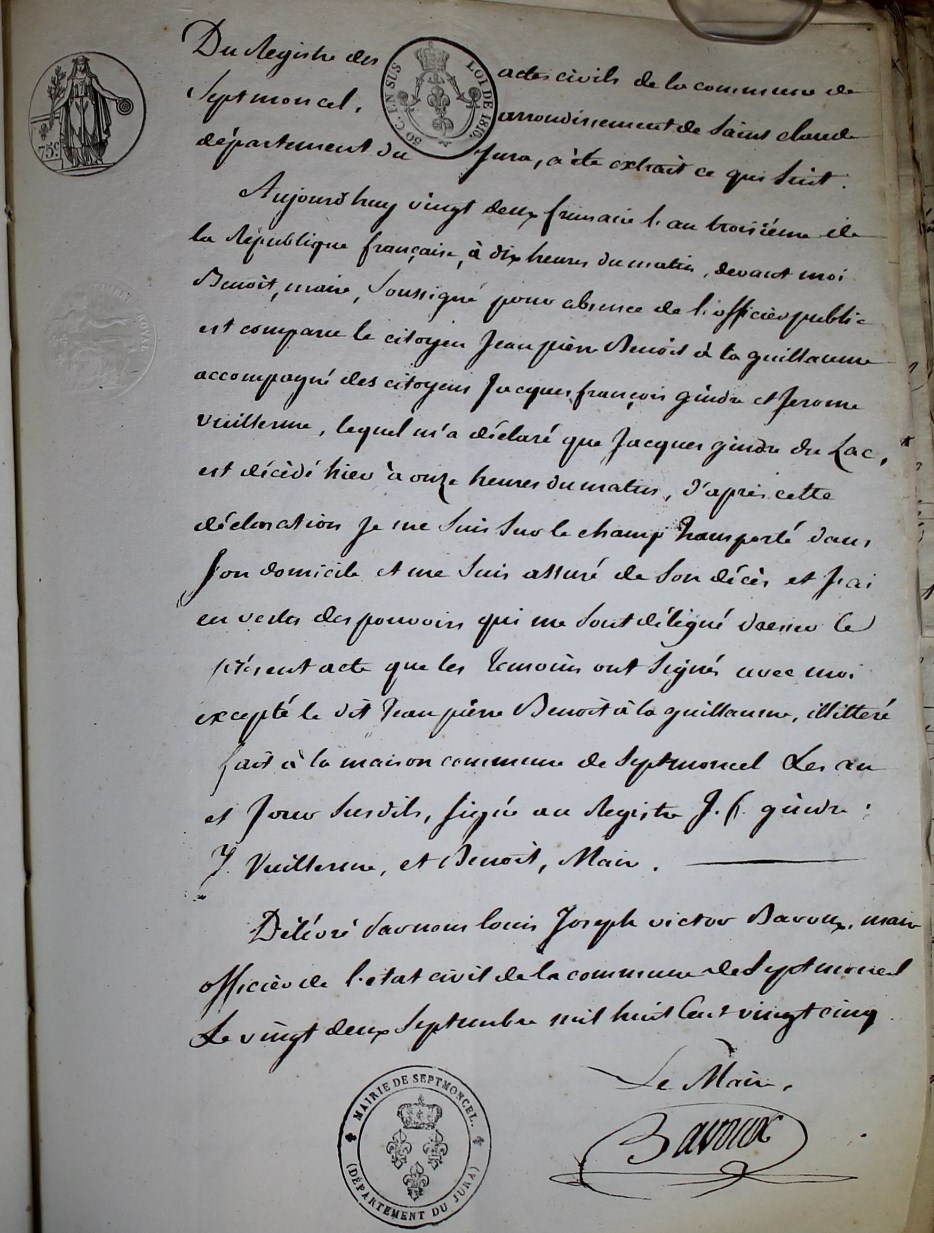 75c
50 C. EN SUS
LOI DE 1816.
Du Registre des actes civils de la commune de
Septmoncel, arrondissement de Saint claude
département du Jura, a été extrait ce qui Suit.
Aujourd'huy vingt deux frimaire l'an troisième de
la République française, à dix heures du matin, devant moi
Benoit, maire, Soussigné pour absence de l'officier public
est comparu le citoyen Jean pierre Benoit à la guillaume
accompagné des citoyens Jacques françois gindre et Jerome
vuillerme, lequel m'a déclaré que Jacques gindre du Lac,
est décédé hier à onze heures du matin, d'après cette
déclaration Je me Suis Sur le champ transporté dans
Son domicile et me Suis assuré de Son décès et J'ai
en vertu des pouvoirs qui me Sont délégué dresser le
présent acte que les témoins ont Signés avec moi
excepté le dit Jean pierre Benoit à la guillaume, illitteré
fait à la maison commune de Septmoncel Les an
et Jour Susdits, Signé au Registre J. f. gindre:
J. Vuillerme, et Benoit, Maire.
Délivré par nous louis Joseph victor Bavoux, maire
officier de l'état civil de la commune de Septmoncel
Le vingt deux Septembre mil huit Cent vingt cinq
Le Maire,
Bavoux
MAIRIE DE SEPTMONCEL.
(DÉPARTEMENT DU JURA)